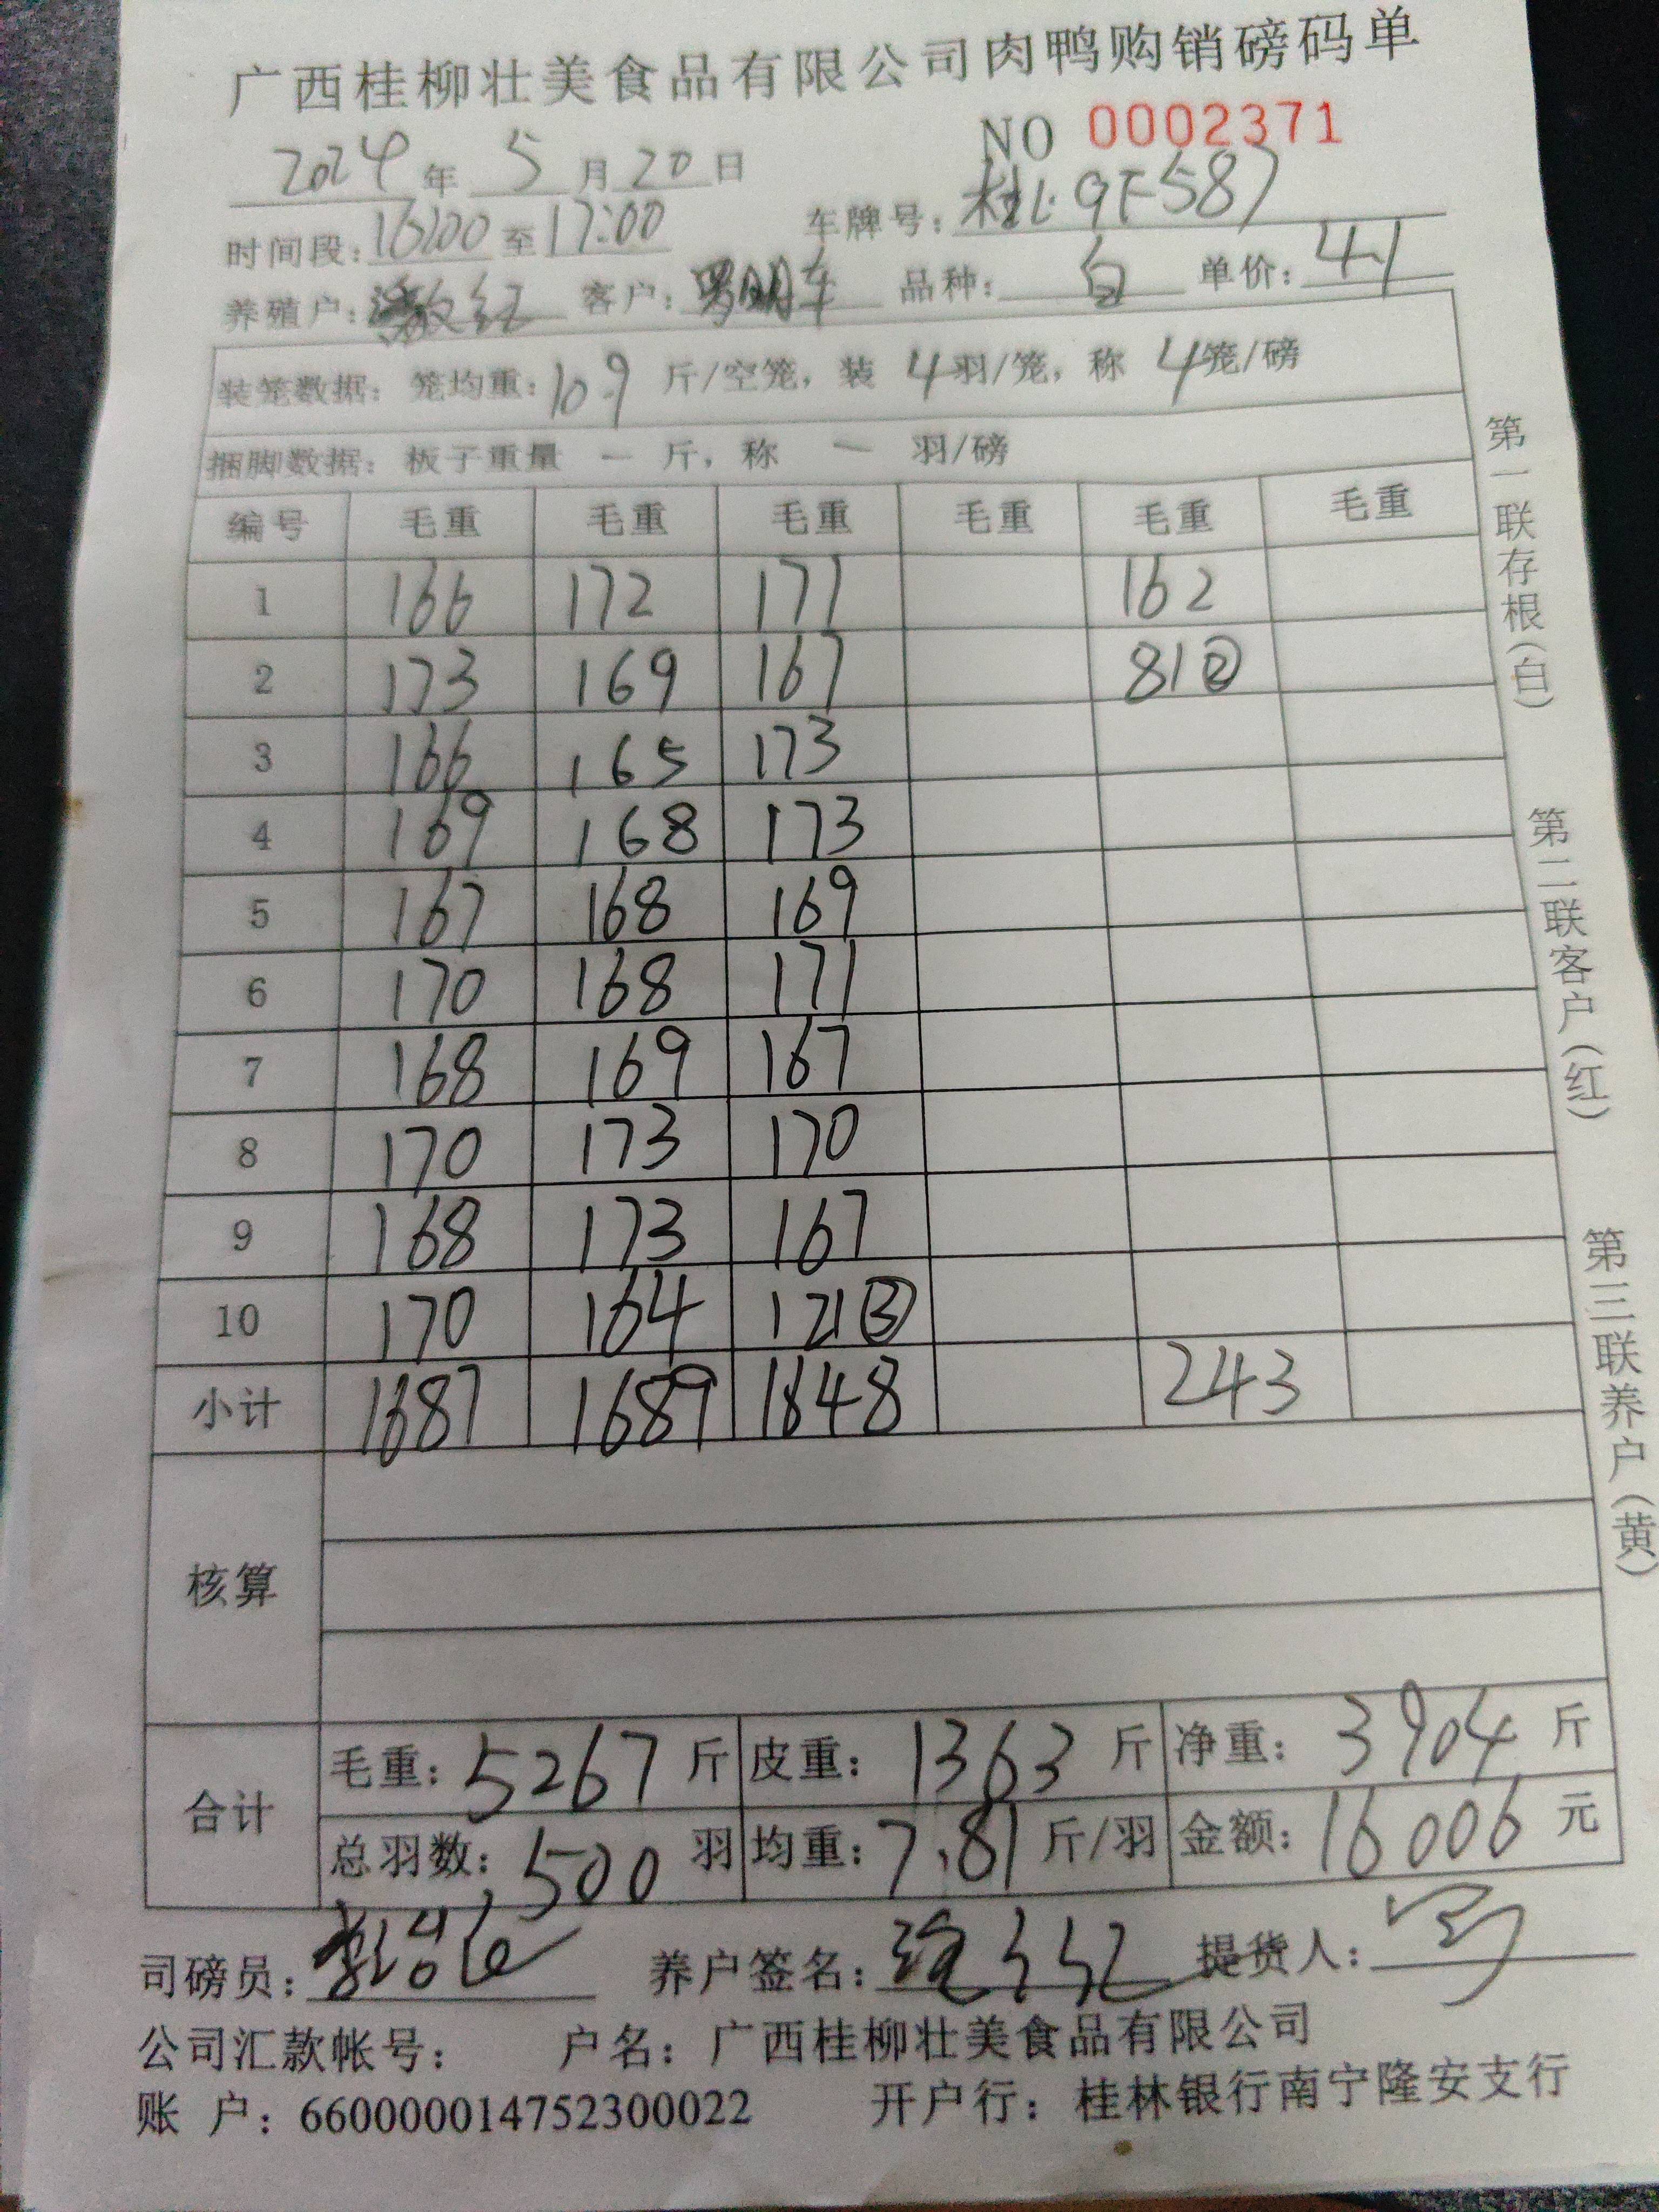 广西桂柳壮美食品有限公司肉鸭购销磅码单
NO 0002371
2024年 5月20日
时间段:16:00至17:00 车牌号:桂L·9F587
养殖户: 红 客户:罗明车 品种:白 单价:4.1
装笼数据: 笼均重:10.9 斤/空笼, 装 4羽/笼, 称 4笼/磅
捆脚数据: 板子重量 一 斤, 称 一 羽/磅
编号 毛重 毛重 毛重 毛重 毛重 毛重
1 166 172 171 162
2 173 169 167 81②
3 166 165 173
4 169 168 173
5 167 168 169
6 170 168 171
7 168 169 167
8 170 173 170
9 168 173 167
10 170 164 121③
小计 1687 1689 1648 243
核算
合计
毛重: 5267 斤 皮重: 1363 斤 净重: 3904 斤
总羽数: 500 羽 均重: 7.81 斤/羽 金额: 16006 元
司磅员: 养户签名: 提货人:
公司汇款帐号: 户名: 广西桂柳壮美食品有限公司
账 户: 660000014752300022 开户行: 桂林银行南宁隆安支行
第一联存根(白) 第二联客户(红) 第三联养户(黄)